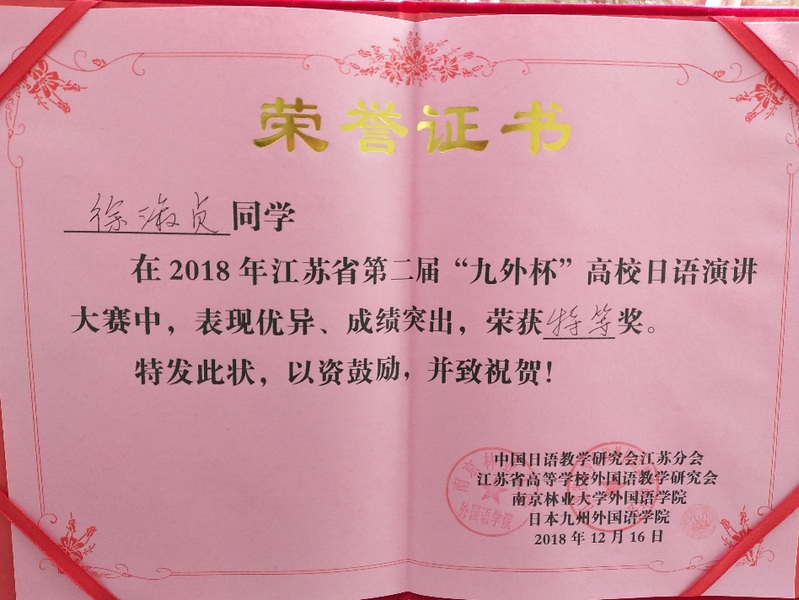 荣誉证书
徐淑贞同学
在2018年江苏省第二届“九外杯”高校日语演讲
大赛中，表现优异、成绩突出，荣获特等奖。
特发此状，以资鼓励，并致祝贺！
中国日语教学研究会江苏分会
江苏省高等学校外国语教学研究会
南京林业大学外国语学院
日本九州外国语学院
2018年12月16日
南京林
外国语学院